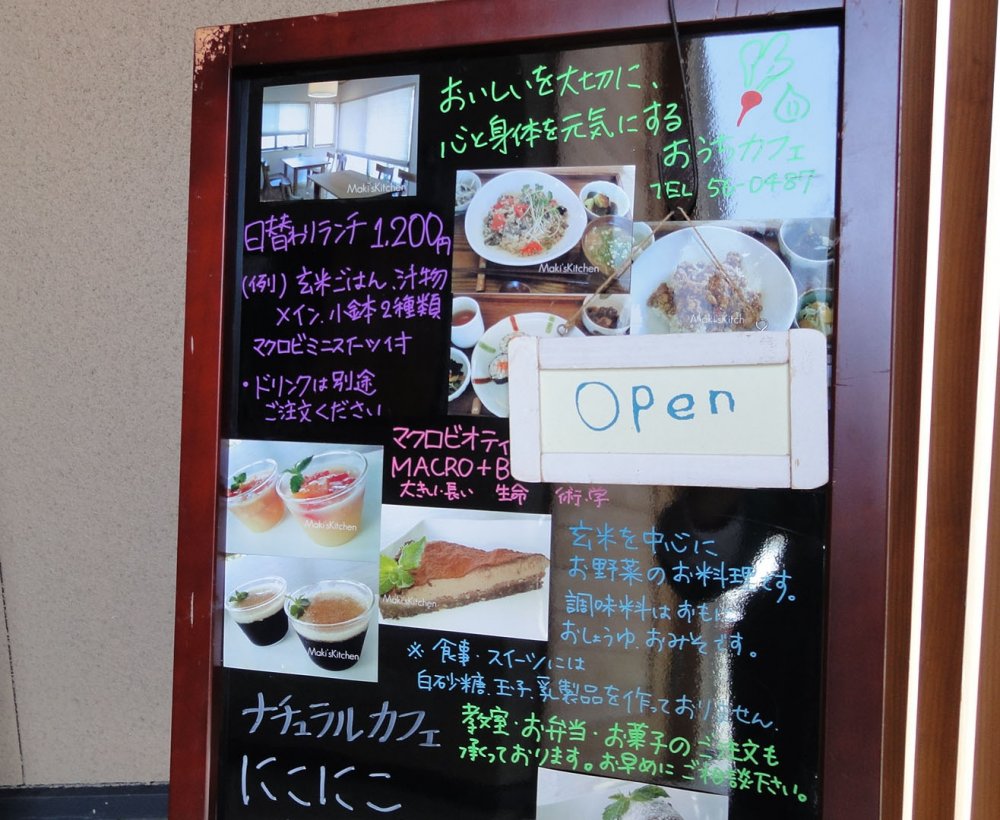 おいしいを大切に、
心と身体を元気にする
おうちカフェ
TEL 56-0487
Maki'sKitchen
日替わりランチ 1,200円
(例) 玄米ごはん、汁物
メイン、小鉢2種類
マクロビミニスイーツ付
・ドリンクは別途
ご注文ください
Maki'sKitchen
Maki'sKitchen
Open
マクロビオティ
MACRO+B
大きい・長い 生命 術・学
Maki'sKitchen
Maki'sKitchen
Maki'sKitchen
玄米を中心に
お野菜のお料理です。
調味料はおもに
おしょうゆ、おみそです。
※ 食事・スイーツには
白砂糖、玉子、乳製品を作っておりません。
ナチュラルカフェ
にこにこ
教室・お弁当・お菓子のご注文も
承っております。お早めにご相談下さい。